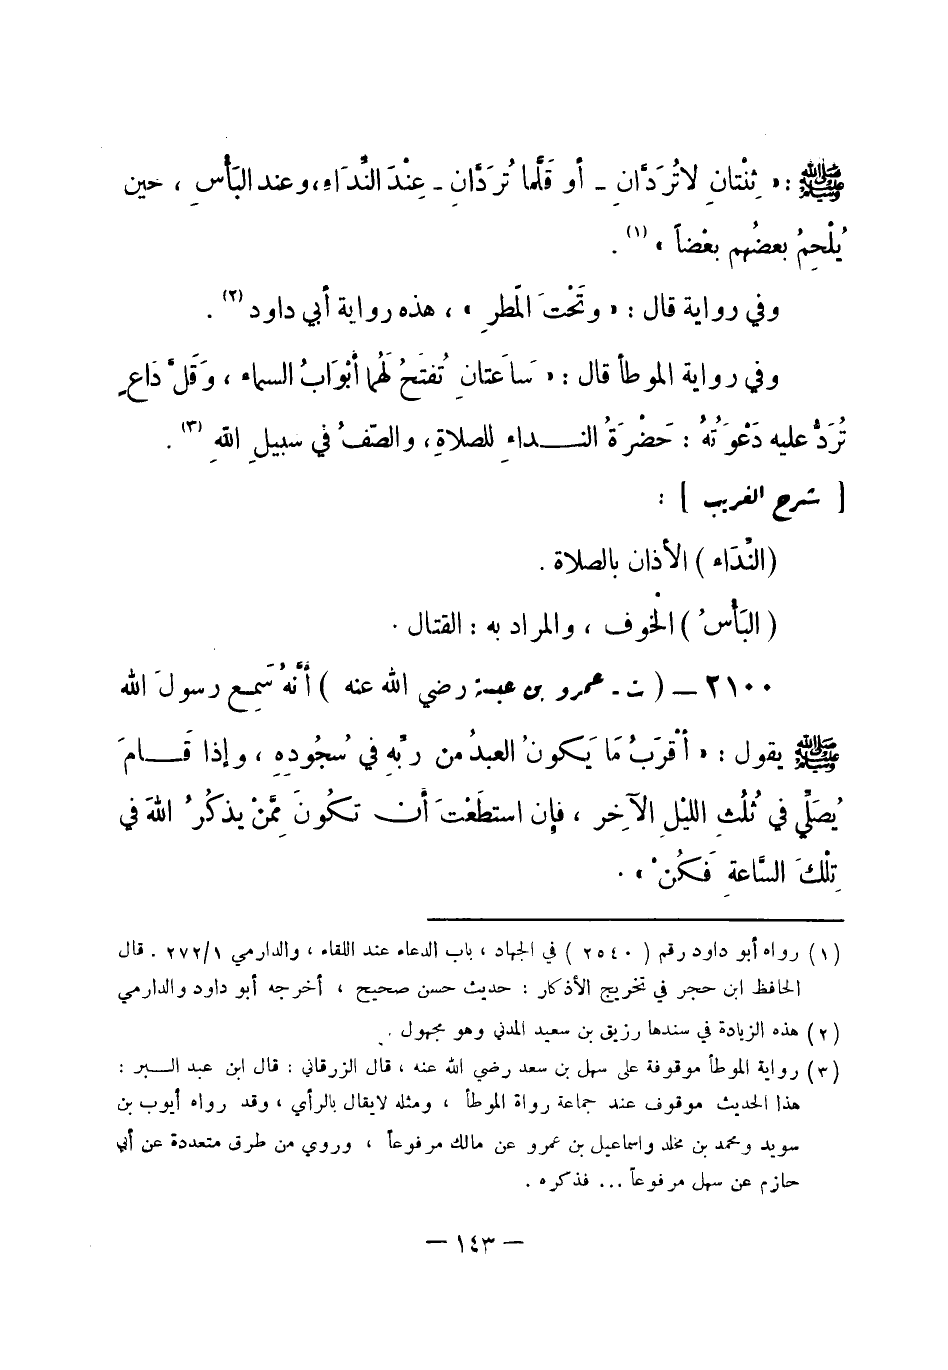 ﷺ : « ثِنْتانِ لاتُرَدَّانِ ـ أو قَلَّما تُردَّانِ ـ عِنْدَ النِّدَاءِ، وعند البَأْسِ ، حين
يُلْحِمُ بعضُهم بعْضاً » (١) .
وفي رواية قال : « وتَحْتَ المَطرِ » ، هذه رواية أبي داود (٢) .
وفي رواية الموطأ قال : « سَاعَتانِ تُفتَحُ لَهُما أبْوَابُ السماء ، وَقَلَّ دَاعٍ
تُرَدُّ عليه دَعْوَتُهُ : حَضْرَةُ النـــداءِ للصلاةِ ، والصّفُ في سبيلِ اللهِ (٣) .
[ شرح الغريب ] :
( النِّدَاء ) الأذان بالصلاة .
( البَأْسُ ) الْخوف ، والمراد به : القتال .
٢١٠٠ – ( ت ـ عمرو بن عبسة رضي الله عنه ) أنَّهُ سَمِـع رسولَ الله
ﷺ يقول : « أقْرَبُ مَا يَكونُ العبدُ من ربِّه في سُجُودِهِ ، وإذا قَـــامَ
يُصَلِّي في ثُلُثِ الليْلِ الآخِر ، فإن استطَعْتَ أَن تكُونَ مِمَّنْ يذكُرُ اللهَ في
تِلْكَ السَّاعةِ فَكُنْ » .
(١) رواه أبو داود رقم ( ٢٥٤٠ ) في الجهاد ، باب الدعاء عند اللقاء ، والدارمي ٢٧٢/١ . قال
الحافظ ابن حجر في تخريج الأذكار : حديث حسن صحيح ، أخرجه أبو داود والدارمي
(٢) هذه الزيادة في سندها رزيق بن سعيد المدني وهو مجهول .
(٣) رواية الموطأ موقوفة على سهل بن سعد رضي الله عنه ، قال الزرقاني : قال ابن عبد الـــبر :
هذا الحديث موقوف عند جماعة رواة الموطأ ، ومثله لايقال بالرأي ، وقد رواه أيوب بن
سويد ومحمد بن مخلد واسماعيل بن عمرو عن مالك مرفوعاً ، وروي من طرق متعددة عن أبي
حازم عن سهل مرفوعاً ... فذكره .
– ١٤٣ –